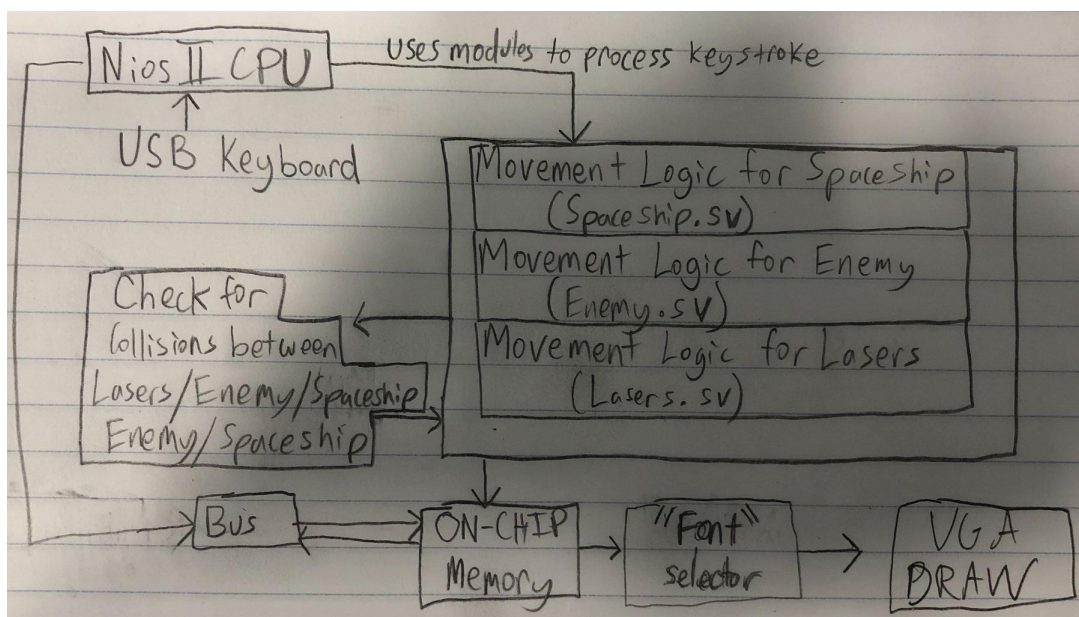 Nios II CPU
Uses modules to process keystroke
USB Keyboard
Movement Logic for Spaceship
(Spaceship.sv)
Movement Logic for Enemy
(Enemy.sv)
Movement Logic for Lasers
(Lasers.sv)
Check for
Collisions between
Lasers/Enemy/Spaceship
Enemy/Spaceship
Bus
ON-CHIP
Memory
"Font"
selector
VGA
DRAW